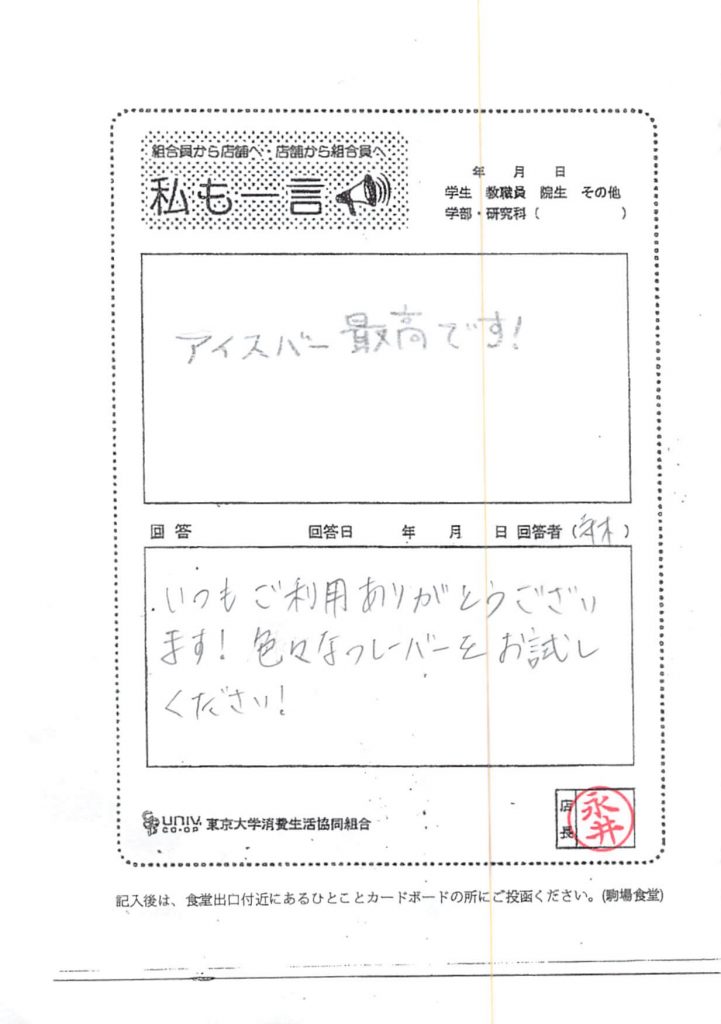 組合員から店舗へ・店舗から組合員へ
私も一言
年 月 日
学生 教職員 院生 その他
学部・研究科( )
アイスバー最高です!
回答 回答日 年 月 日 回答者( )
いつもご利用ありがとうござい
ます! 色々なフレーバーをお試し
ください!
UNIV. CO-OP 東京大学消費生活協同組合
店長 永井
記入後は、食堂出口付近にあるひとことカードボードの所にご投函ください。(駒場食堂)